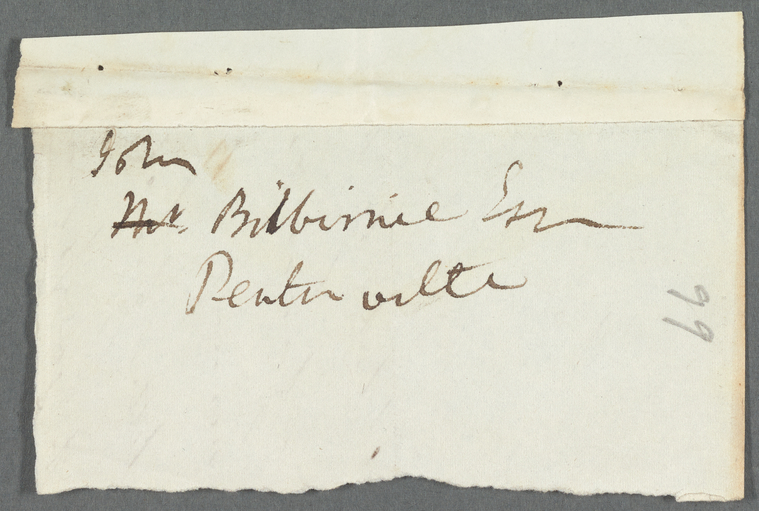 John
Mr. Bilbirnie Esqr
Pentonville
99